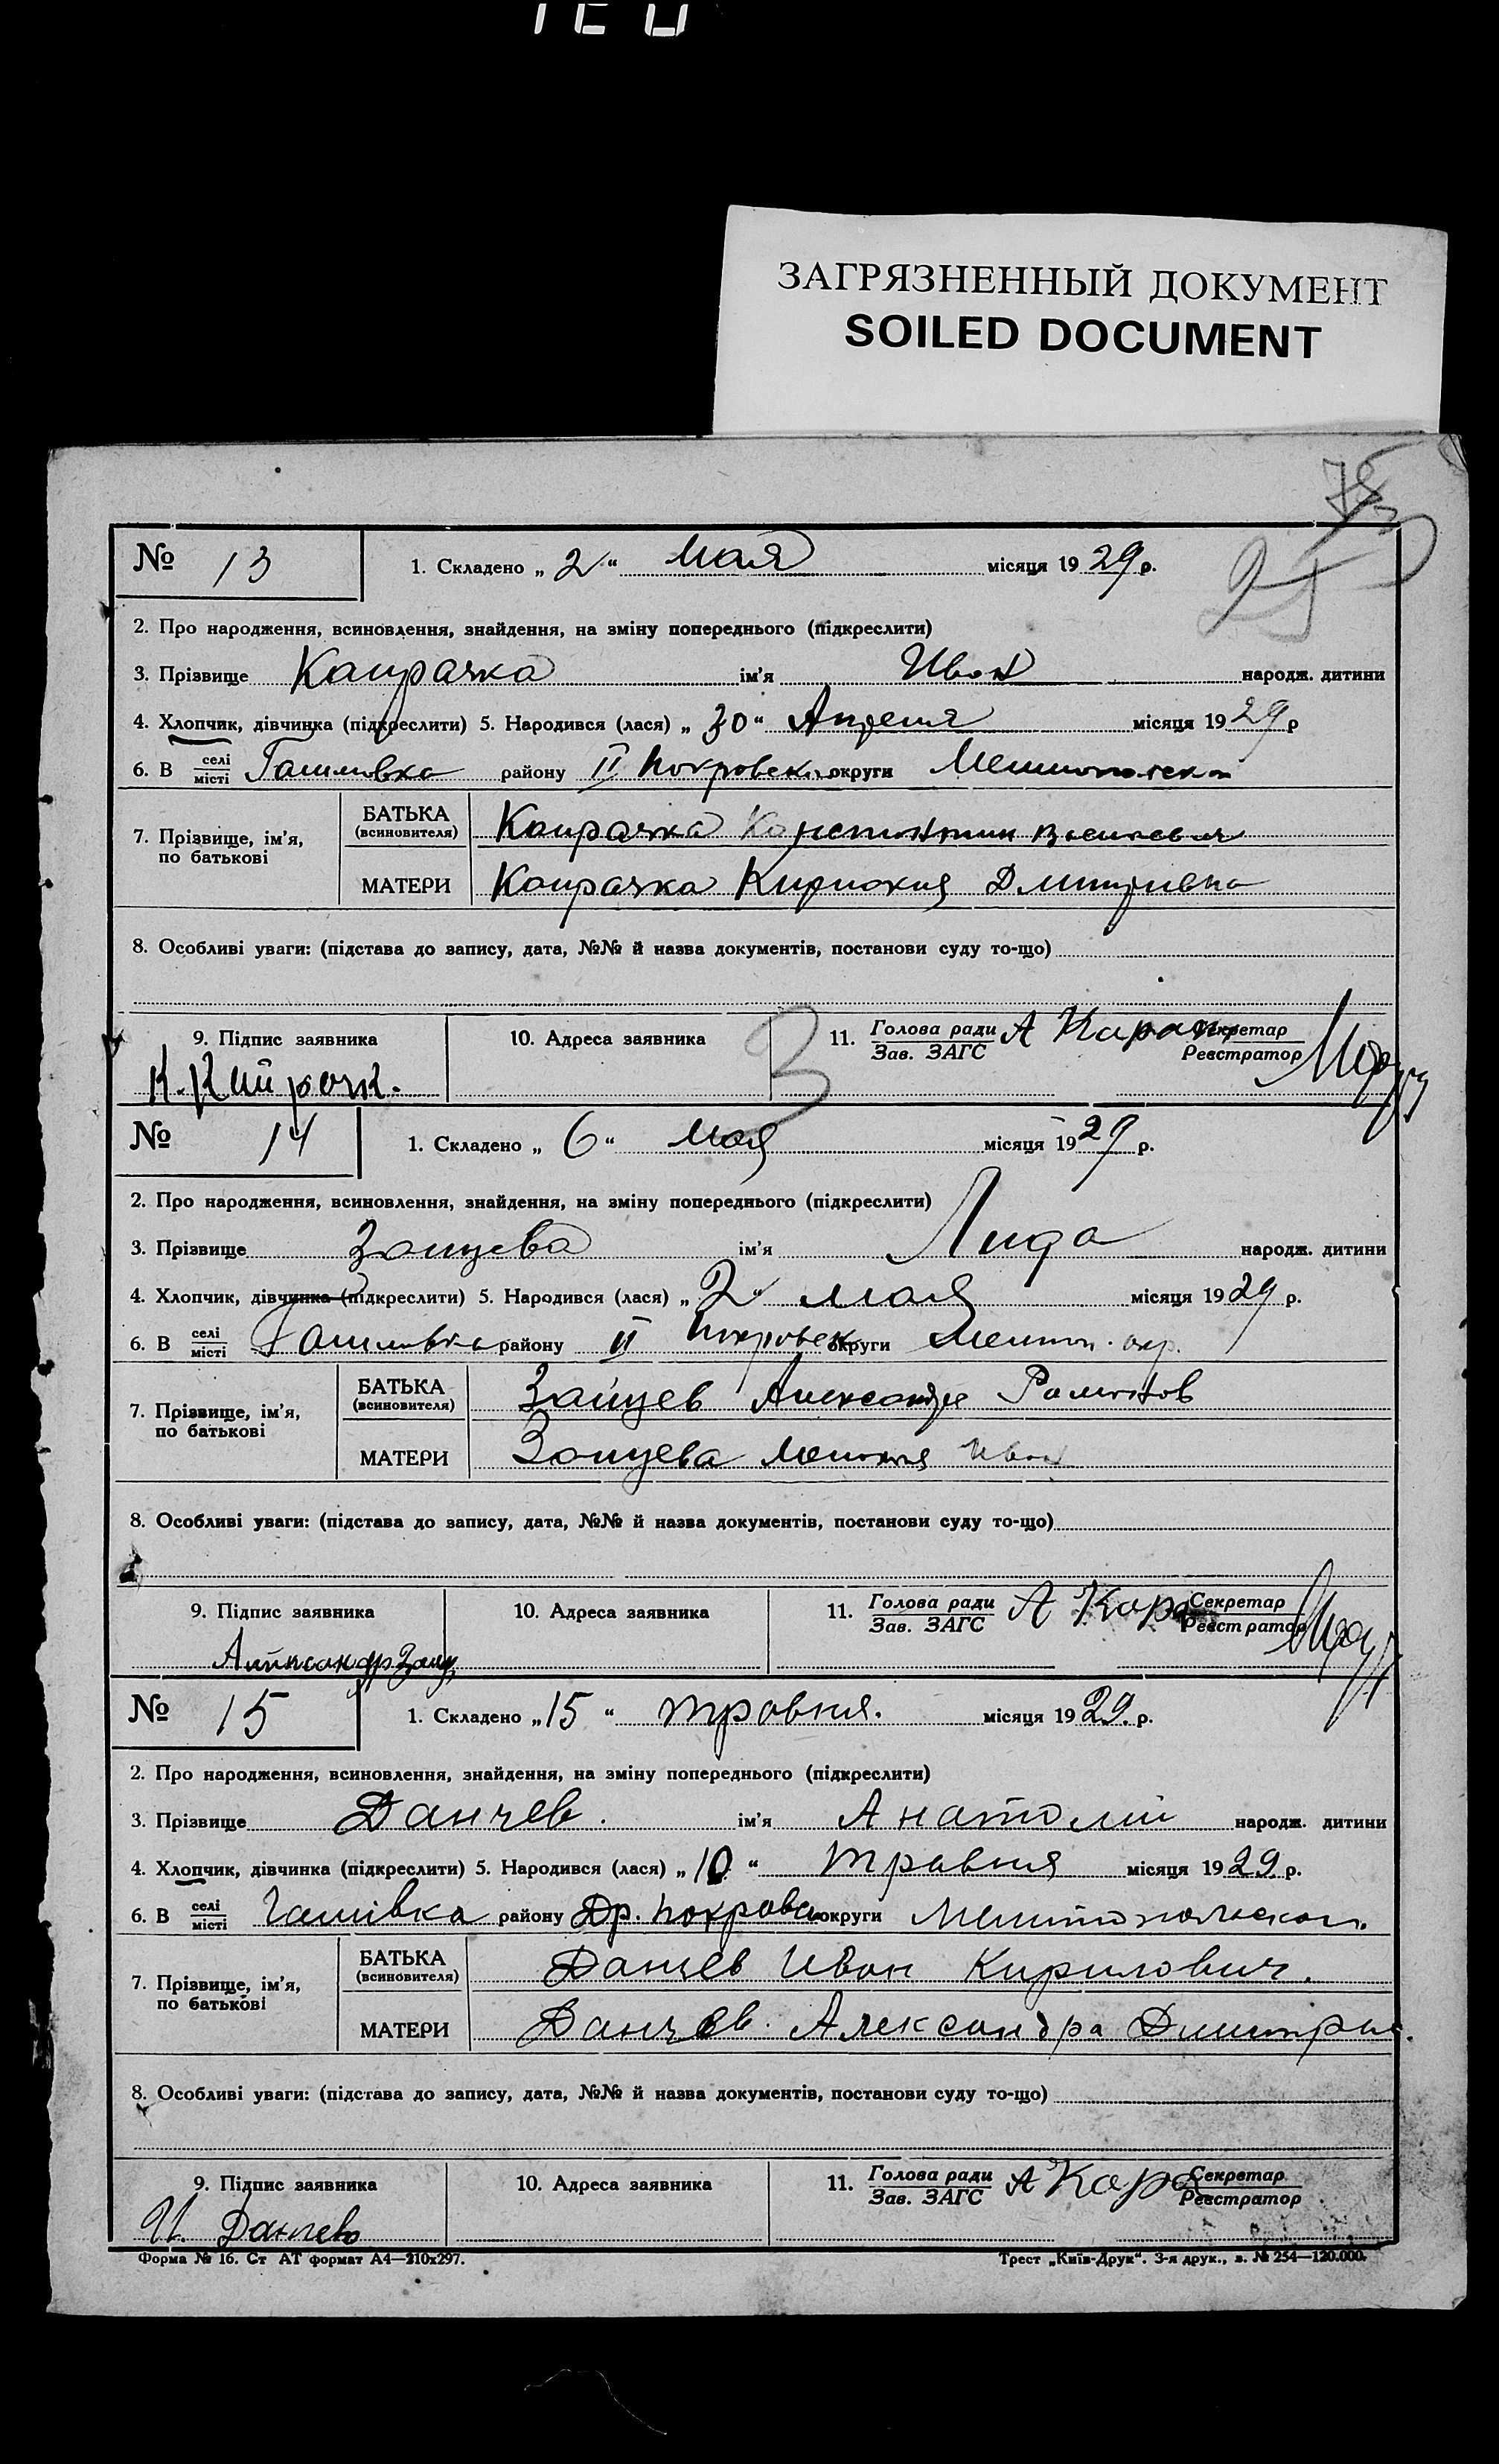 ЗАГРЯЗНЕННЫЙ ДОКУМЕНТ
SOILED DOCUMENT
№ 13 1. Складено „2“ Мая місяця 1929 р.
2. Про народження, всиновлення, знайдення, на зміну попереднього (підкреслити)
3. Прізвище Каирачка ім'я Иван народж. дитини
4. Хлопчик, дівчинка (підкреслити) 5. Народився (лася) „30“ Апреля місяця 1929 р
6. В селі місті району II Покровск округи
7. Прізвище, ім'я, по батькові
БАТЬКА (всиновителя) Каирачка Константин
МАТЕРИ Каирачка Дмитривна
8. Особливі уваги: (підстава до запису, дата, №№ й назва документів, постанови суду то-що)
9. Підпис заявника 10. Адреса заявника 11. Голова ради Зав. ЗАГС А Секретар Реєстратор
3
№ 14 1. Складено „6“ мая місяця 1929 р.
2. Про народження, всиновлення, знайдення, на зміну попереднього (підкреслити)
3. Прізвище Зайцева ім'я Лида народж. дитини
4. Хлопчик, дівчинка (підкреслити) 5. Народився (лася) „2“ мая місяця 1929 р.
6. В селі місті району II Покровск округи Мелитоп. окр.
7. Прізвище, ім'я, по батькові
БАТЬКА (всиновителя) Зайцев Александр
МАТЕРИ Зайцева Иван
8. Особливі уваги: (підстава до запису, дата, №№ й назва документів, постанови суду то-що)
9. Підпис заявника 10. Адреса заявника 11. Голова ради Зав. ЗАГС А Кара Секретар Реєстратор
Александр Зайц
№ 15 1. Складено „15“ травня. місяця 1929. р.
2. Про народження, всиновлення, знайдення, на зміну попереднього (підкреслити)
3. Прізвище Данчев. ім'я Анатолий народж. дитини
4. Хлопчик, дівчинка (підкреслити) 5. Народився (лася) „10“ травня місяця 1929. р.
6. В селі місті району Др. Покровск округи Мелитопольской.
7. Прізвище, ім'я, по батькові
БАТЬКА (всиновителя) Данчев Иван Кирилович.
МАТЕРИ Данчев. Александра Димитрив.
8. Особливі уваги: (підстава до запису, дата, №№ й назва документів, постанови суду то-що)
9. Підпис заявника 10. Адреса заявника 11. Голова ради Зав. ЗАГС А Кара Секретар Реєстратор
И. Данчев
Форма № 16. Ст АТ формат А4—210х297. Трест „Київ-Друк“. 3-я друк., з. № 254—120.000.